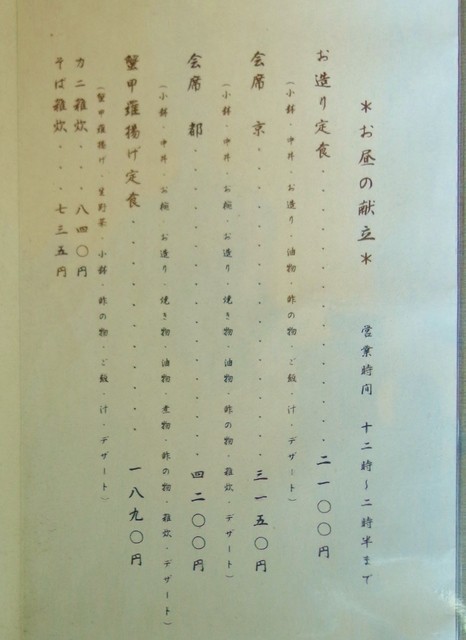 ＊お昼の献立＊　営業時間　十二時～二時半まで
お造り定食・・・・・・・・・・・・・・・二一〇〇円
（小鉢・中丼・お造り・油物・酢の物・ご飯・汁・デザート）
会席　京・・・・・・・・・・・・・・・・三一五〇円
（小鉢・中丼・お椀・お造り・焼き物・油物・酢の物・雑炊・デザート）
会席　都・・・・・・・・・・・・・・・・四二〇〇円
（小鉢・中丼・お椀・お造り・焼き物・油物・煮物・酢の物・雑炊・デザート）
蟹甲羅揚げ定食・・・・・・・・・・・・・一八九〇円
（蟹甲羅揚げ・生野菜・小鉢・酢の物・ご飯・汁・デザート）
カニ雑炊・・・八四〇円
そば雑炊・・・七三五円